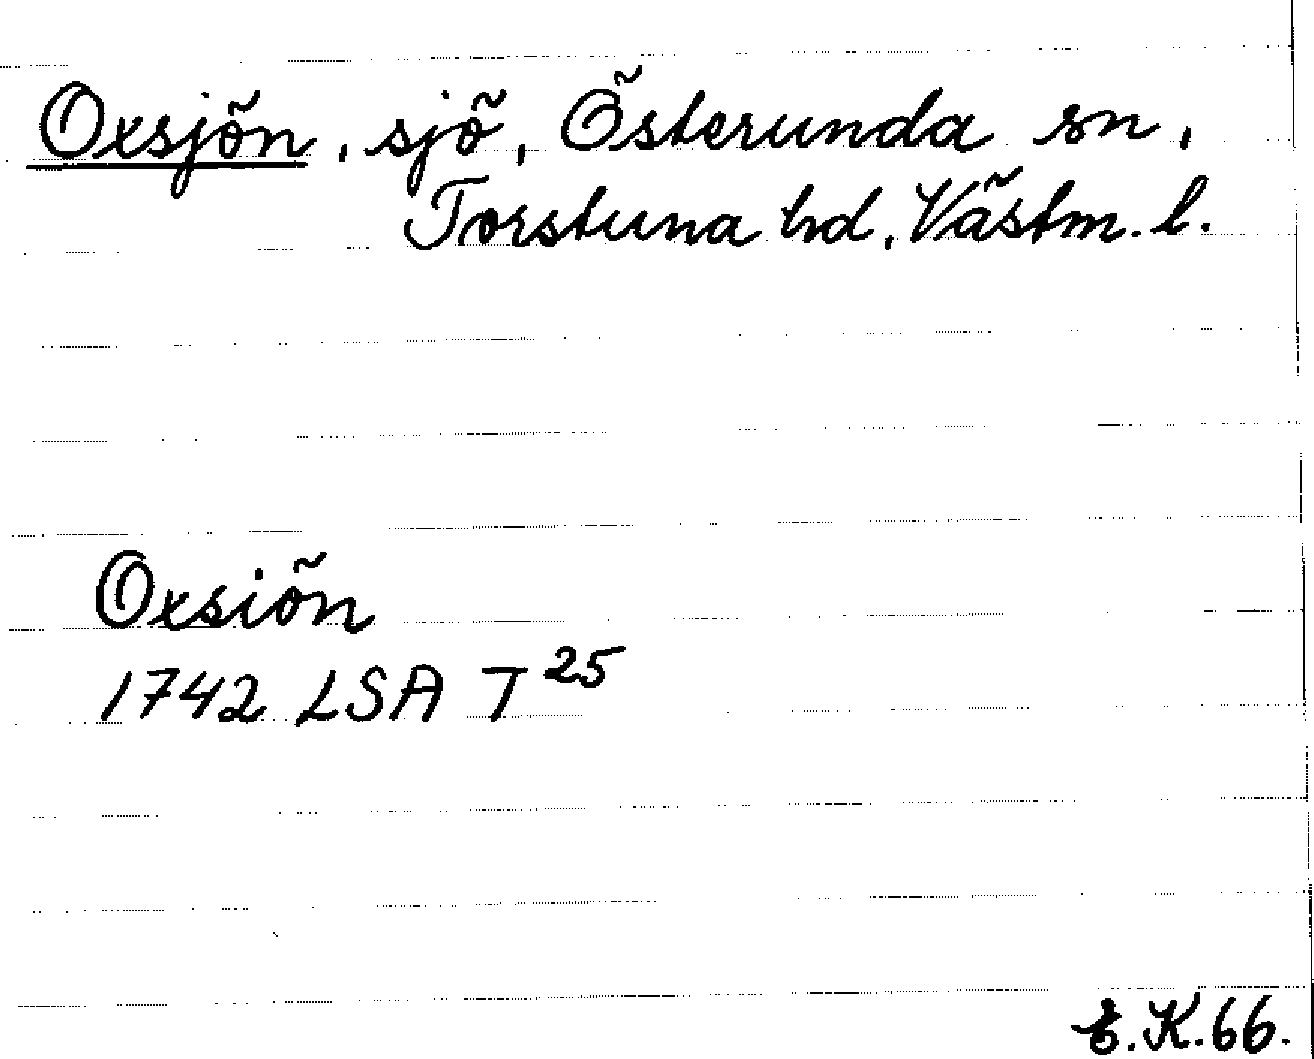 Oxsjön, sjö, Österunda sn,
Torstuna hd, Västm. l.
Oxsiön
1742 LSA T 25
E.K.66.